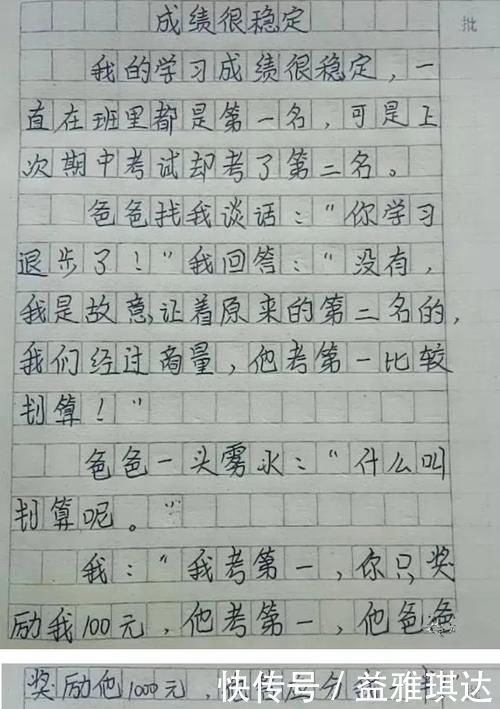 成绩很稳定
批
我的学习成绩很稳定，一
直在班里都是第一名，可是上
次期中考试却考了第二名。
爸爸找我谈话："你学习
退步了！"我回答："没有，
我是故意让着原来的第二名的，
我们经过商量，他考第一比较
划算！"
爸爸一头雾水："什么叫
划算呢。"
我："我考第一，你只奖
励我100元，他考第一，他爸爸
奖励他1000元，
快传号／益雅琪达